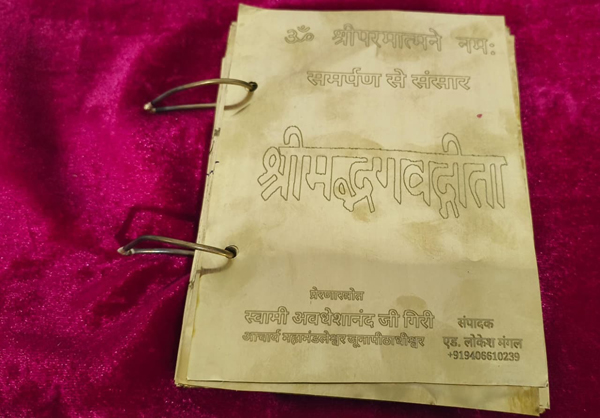 ॐ श्रीपरमात्मने नमः
समर्पण से संसार
श्रीमद्भगवद्गीता
प्रेरणास्त्रोत
स्वामी अवधेशानंद जी गिरी
आचार्य महामंडलेश्वर जूनापीठाधीश्वर
संपादक
एड. लोकेश मंगल
+919406610239